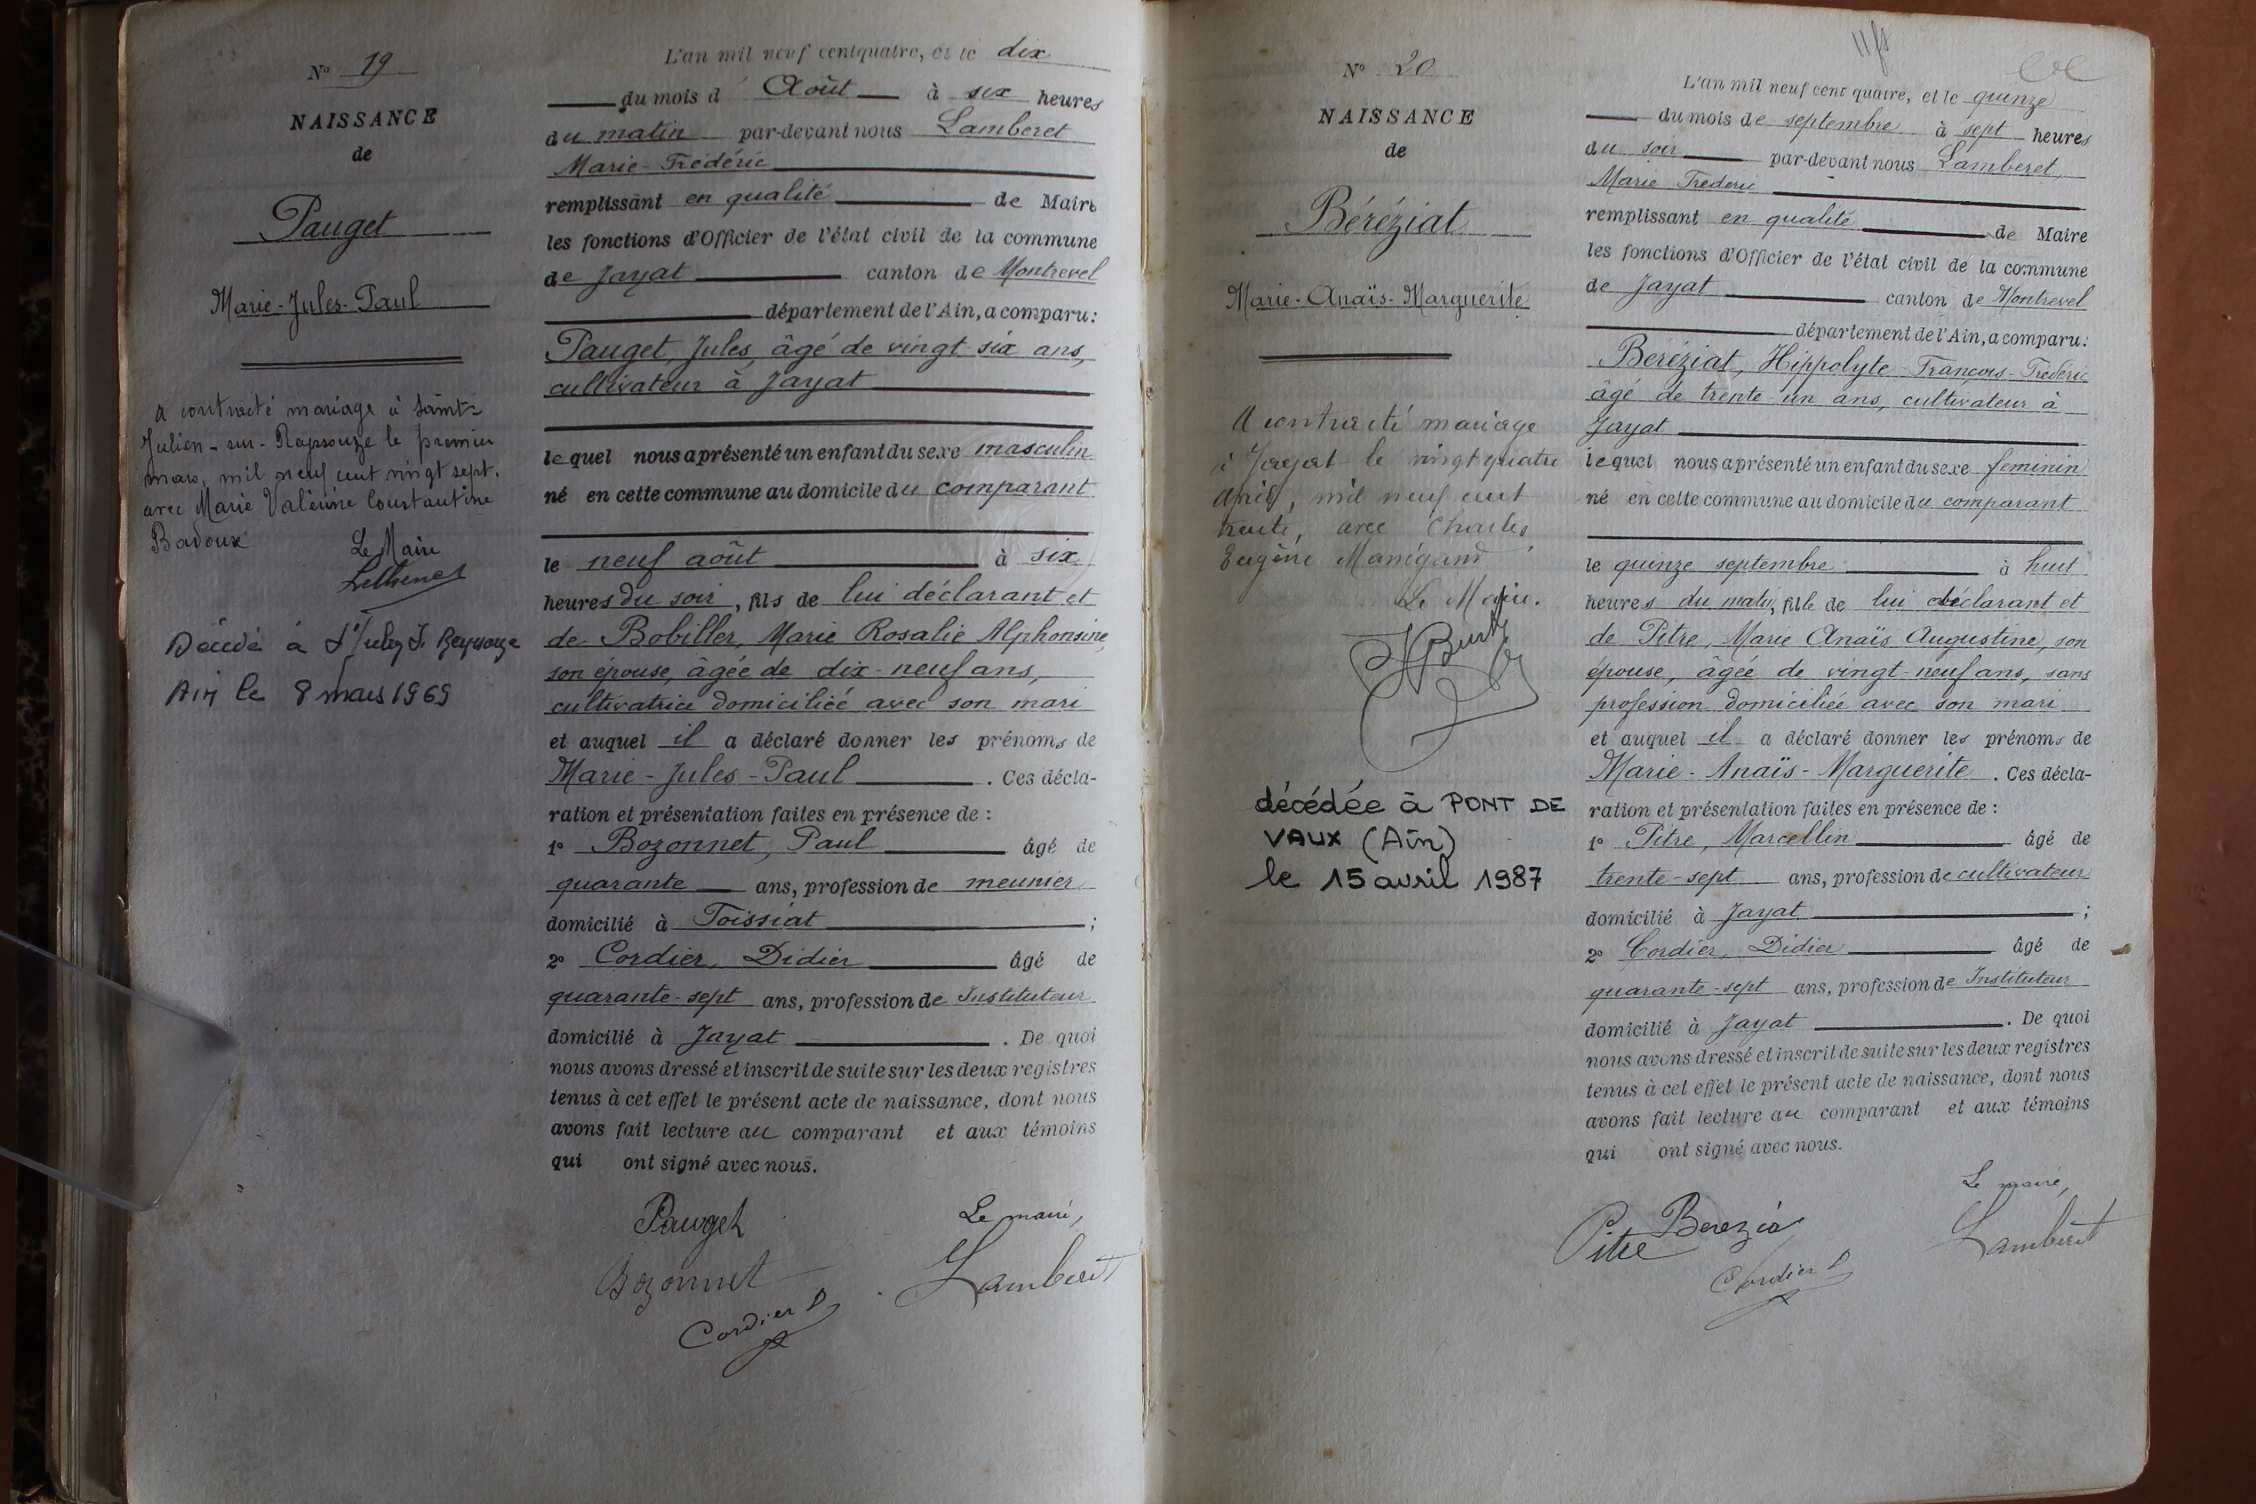 N° 19
NAISSANCE
de
Pauget
Marie-Jules-Paul
a contracté mariage à Saint-
Julien-sur-Reyssouze le premier
mars mil neuf cent vingt sept.
avec Marie Valérine Constantine
Badoux
Le Maire
Décédé à St Julien s. Reyssouze
Ain le 8 mars 1969
L'an mil neuf cent quatre, et le dix
du mois d'Août à six heures
du matin par-devant nous Lamberet
Marie-Frédéric
remplissant en qualité de Maire
les fonctions d'Officier de l'état civil de la commune
de Jayat canton de Montrevel
département de l'Ain, a comparu:
Pauget, Jules, âgé de vingt-six ans,
cultivateur à Jayat
lequel nous a présenté un enfant du sexe masculin
né en cette commune au domicile du comparant
le neuf août à six
heures du soir, fils de lui déclarant et
de Bobiller, Marie Rosalie Alphonsine,
son épouse, âgée de dix-neuf ans,
cultivatrice domiciliée avec son mari
et auquel il a déclaré donner les prénoms de
Marie-Jules-Paul. Ces décla-
ration et présentation faites en présence de :
1° Bozonnet, Paul âgé de
quarante ans, profession de meunier
domicilié à Foissiat ;
2° Cordier, Didier âgé de
quarante-sept ans, profession de Instituteur
domicilié à Jayat. De quoi
nous avons dressé et inscrit de suite sur les deux registres
tenus à cet effet le présent acte de naissance, dont nous
avons fait lecture au comparant et aux témoins
qui ont signé avec nous.
Pauget
Le maire,
Bozonnet
Lamberet
Cordier D
N° 20
NAISSANCE
de
Béréziat
Marie-Anaïs-Marguerite
A contracté mariage
à Jayat le vingt quatre
avril, mil neuf cent
trente, avec Charles
Eugène Manigand
Le Maire.
décédée à PONT DE
VAUX (Ain)
le 15 avril 1987
L'an mil neuf cent quatre, et le quinze
du mois de septembre à sept heures
du soir par-devant nous Lamberet
Marie Frederic
remplissant en qualité de Maire
les fonctions d'Officier de l'état civil de la commune
de Jayat canton de Montrevel
département de l'Ain, a comparu:
Beréziat, Hippolyte-François-Frédéric
âgé de trente-un ans, cultivateur à
Jayat
lequel nous a présenté un enfant du sexe feminin
né en cette commune au domicile du comparant
le quinze septembre à huit
heures du matin, fille de lui déclarant et
de Pitre, Marie Anaïs Augustine, son
épouse, âgée de vingt-neuf ans, sans
profession domiciliée avec son mari
et auquel il a déclaré donner les prénoms de
Marie-Anaïs-Marguerite. Ces décla-
ration et présentation faites en présence de :
1° Pitre, Marcellin âgé de
trente-sept ans, profession de cultivateur
domicilié à Jayat ;
2° Cordier, Didier âgé de
quarante-sept ans, profession de Instituteur
domicilié à Jayat. De quoi
nous avons dressé et inscrit de suite sur les deux registres
tenus à cet effet le présent acte de naissance, dont nous
avons fait lecture au comparant et aux témoins
qui ont signé avec nous.
Le maire,
Pitre Berezia
Lamberet
Cordier D